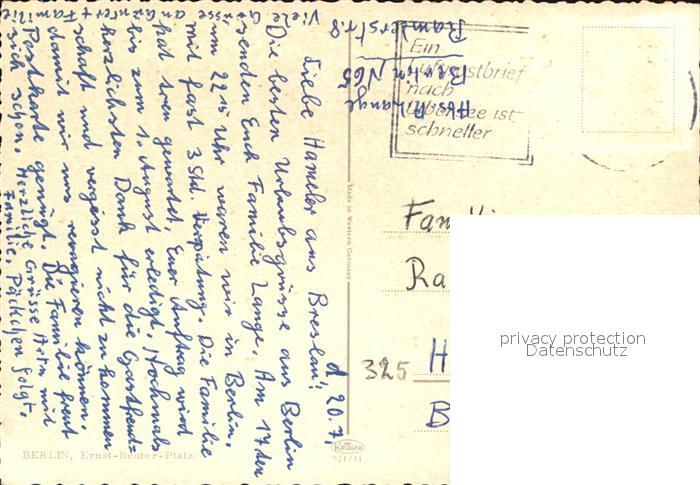 d. 20.7.
Liebe Hamiller aus Breslau!
Die besten Urlaubsgrüsse aus Berlin
senden Euch Familie Lange. Am 17. den
um 22 15 Uhr waren wir in Berlin,
mit fast 3 Std. Verspätung. Die Familie
hat treu gewartet, Euer Auftrag wird
bis zum 1. August erledigt, Nochmals
herzlichsten Dank für die Gastfreund-
schaft und vergesst nicht zu kommen
damit wir uns revangieren können,
Postkarte genügt. Die Familie freut
sich schon. Herzliche Grüsse
Familie Päkchen folgt.
Viele Grüsse an Günter + Familie
Abs. Lange
Berlin N65
Ein
Luftpostbrief
nach
Übersee ist
schneller
Made in Western Germany
Fam
Ra
325 H
B
BERLIN, Ernst-Reuter-Platz
KRÜGER
921/31
privacy protection
Datenschutz